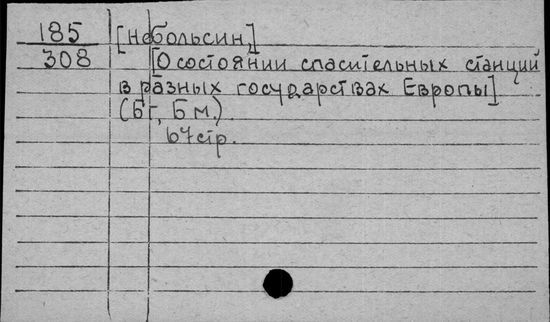 185 [Небольсин,]
308 [О состоянии спасительных станций
в разных государствах Европы]
(Б г, Б м.)
67 стр.